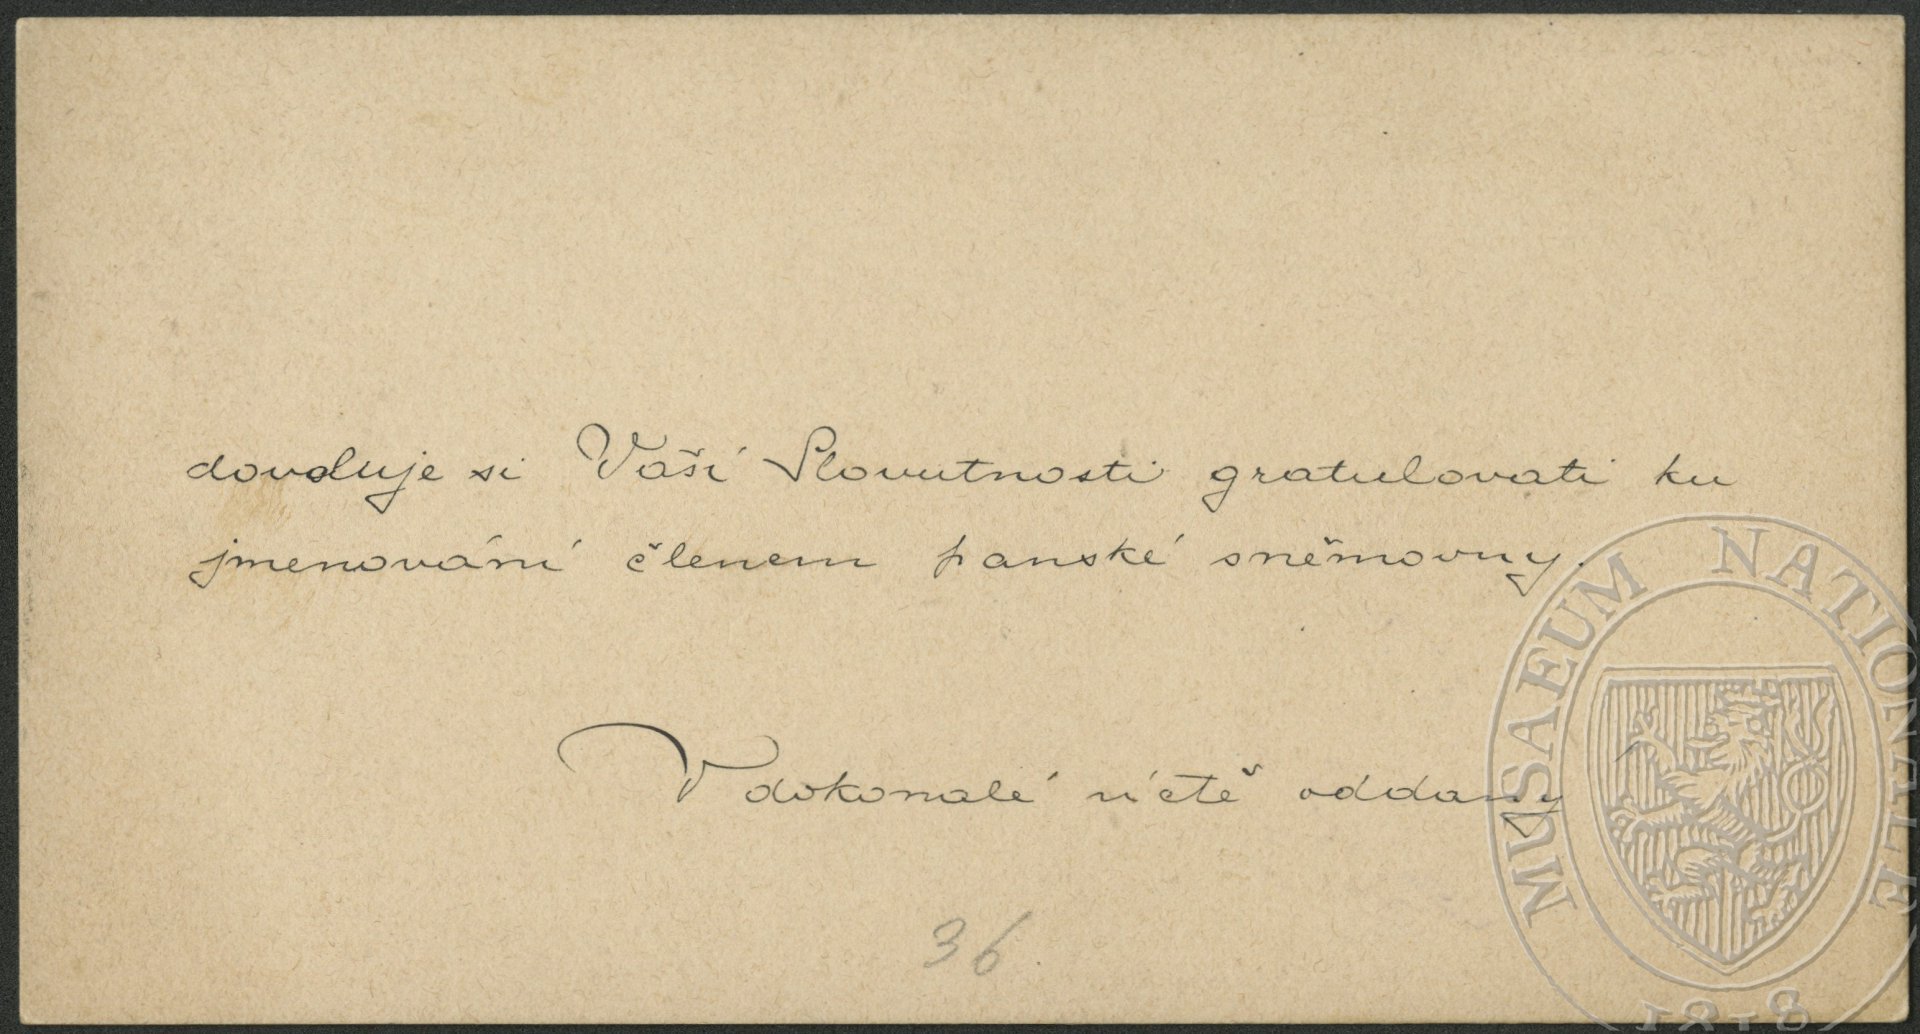 dovoluje si Vaší Slovutnosti gratulovati ku
jmenování členem panské sněmovny.
V dokonalé úctě oddaný
36
MUSAEUM NATIONALE
1818